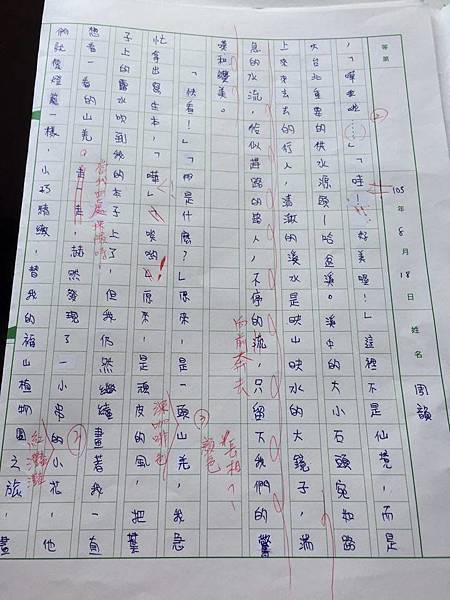 等第 105年8月18日 姓名 周韻
，「嘩啦啦……」「哇！好美喔！」這裡不是仙境，而是
大台北重要的供水源頭—哈盆溪。溪中的大小石頭宛如路
上來來去去的行人，清澈的溪水是映山映水的大鏡子，湍
息的水流，恰似趕路的路人，不停的流，只留下我們的驚
向前奔去
嘆和讚美。
長相、
顏色
「快看！」「那是什麼？」原來，是一頭山羌，我急
深咖啡色
忙拿出寫生本，「嘩」唉喲！原來，是頑皮的風，一把葉
子上的露水吹到我的本子上了，但我仍然繼續畫著我一直
當我四處探險時
想看一看的山羌。赫然發現了一小串的小花，他
紅灩灩
們就像燈籠一樣，小巧精緻，替我的福山植物園之旅，畫